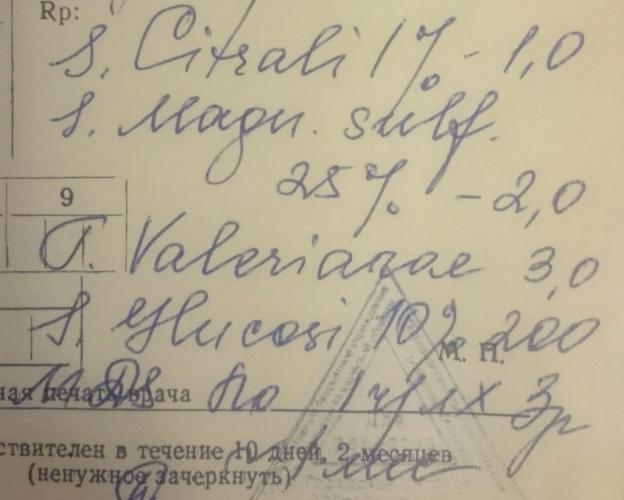 Rp:
S. Citrali 1% - 1,0
S. Magn. sulf.
25% - 2,0
9
T. Valerianae 3,0
S. Glucosi 10% 200
М. П.
ная печать врача
MDS по 1 ч/л х 3р
ствителен в течение 10 дней, 2 месяцев
(ненужное зачеркнуть)